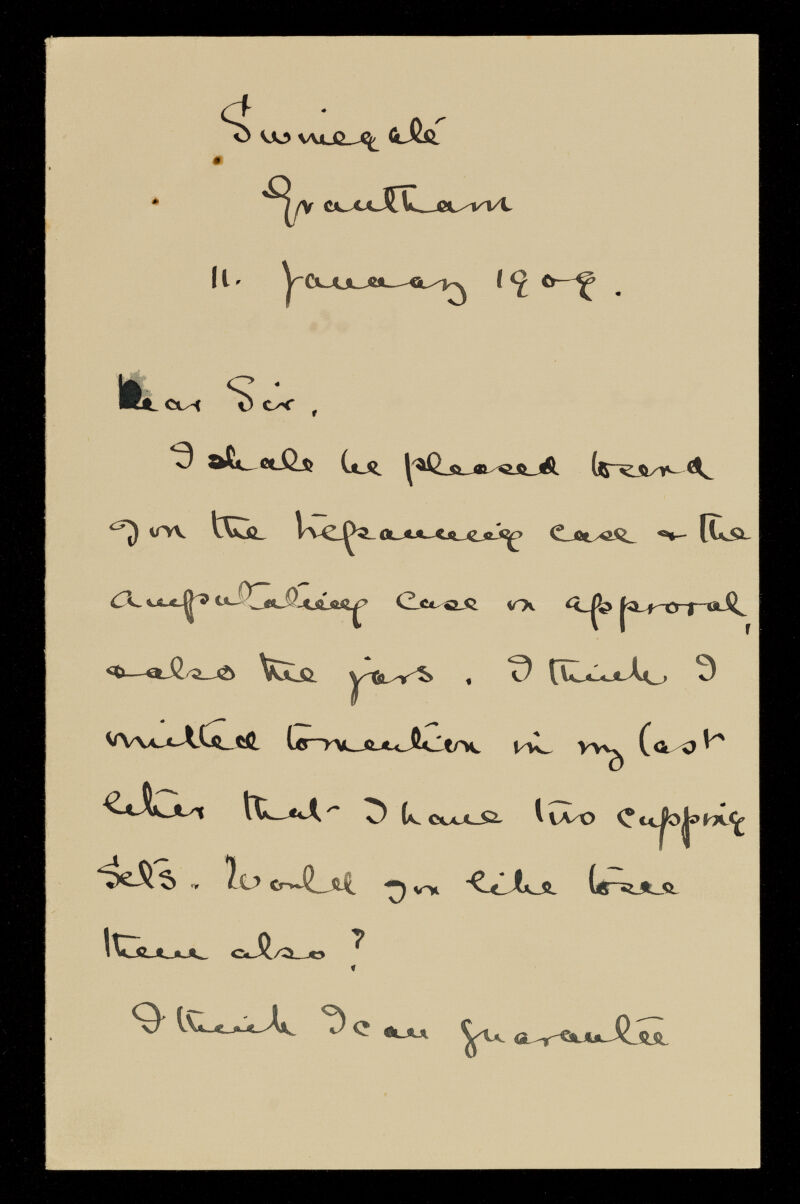 Swinegate
Grantham
11. January 1909.
Dear Sir,
I shall be pleased to send
you the trepanning case & the
amputating case on approval,
& also the jars. I think I
omitted to mention in my last
letter that I have two cupping
sets. Would you like to see
them also?
I think I can guarantee